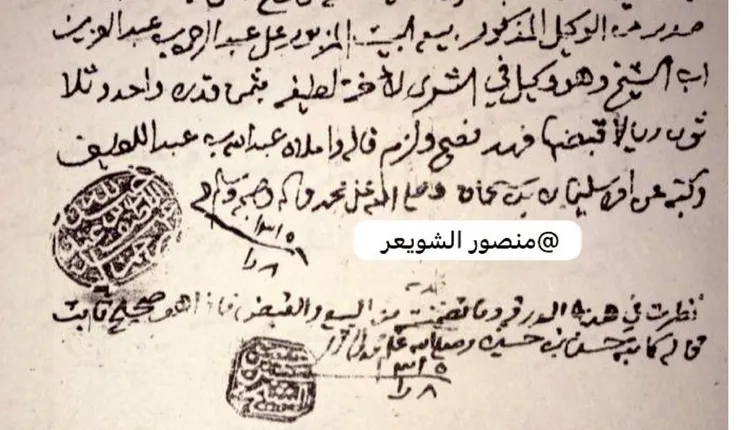 صدر من الوكيل المذكور بيع البيت المزبور على عبد الرحمن بن عبد العزيز
ابا الشيخ وهو وكيل في الشرى لأخته لطيفه بثمن قدره واحد وثلا
ثون ريالا قبضها فهد فصح ولزم قاله واملاه عبد الله بن عبد اللطيف
وكتبه عن امره سليمان بن سحمان وصلى الله على محمد واله وصحبه وسلم
١٣١٥
@منصور الشويعر
نظرت في هذه الورقه وما تضمنت من البيع والقبض فاذا هو صحيح ثابت
قاله كاتبه حسن بن حسين وصلى الله على محمد
١٣١٥